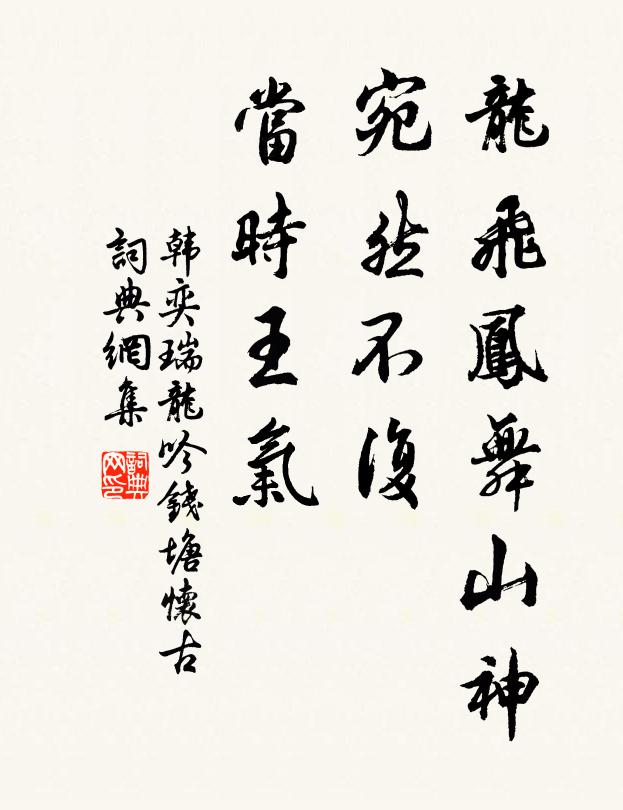 龍飛鳳舞山神
宛然不復
當時王氣
韩奕瑞龍吟錢塘懷古
詞典網集
詞典网印